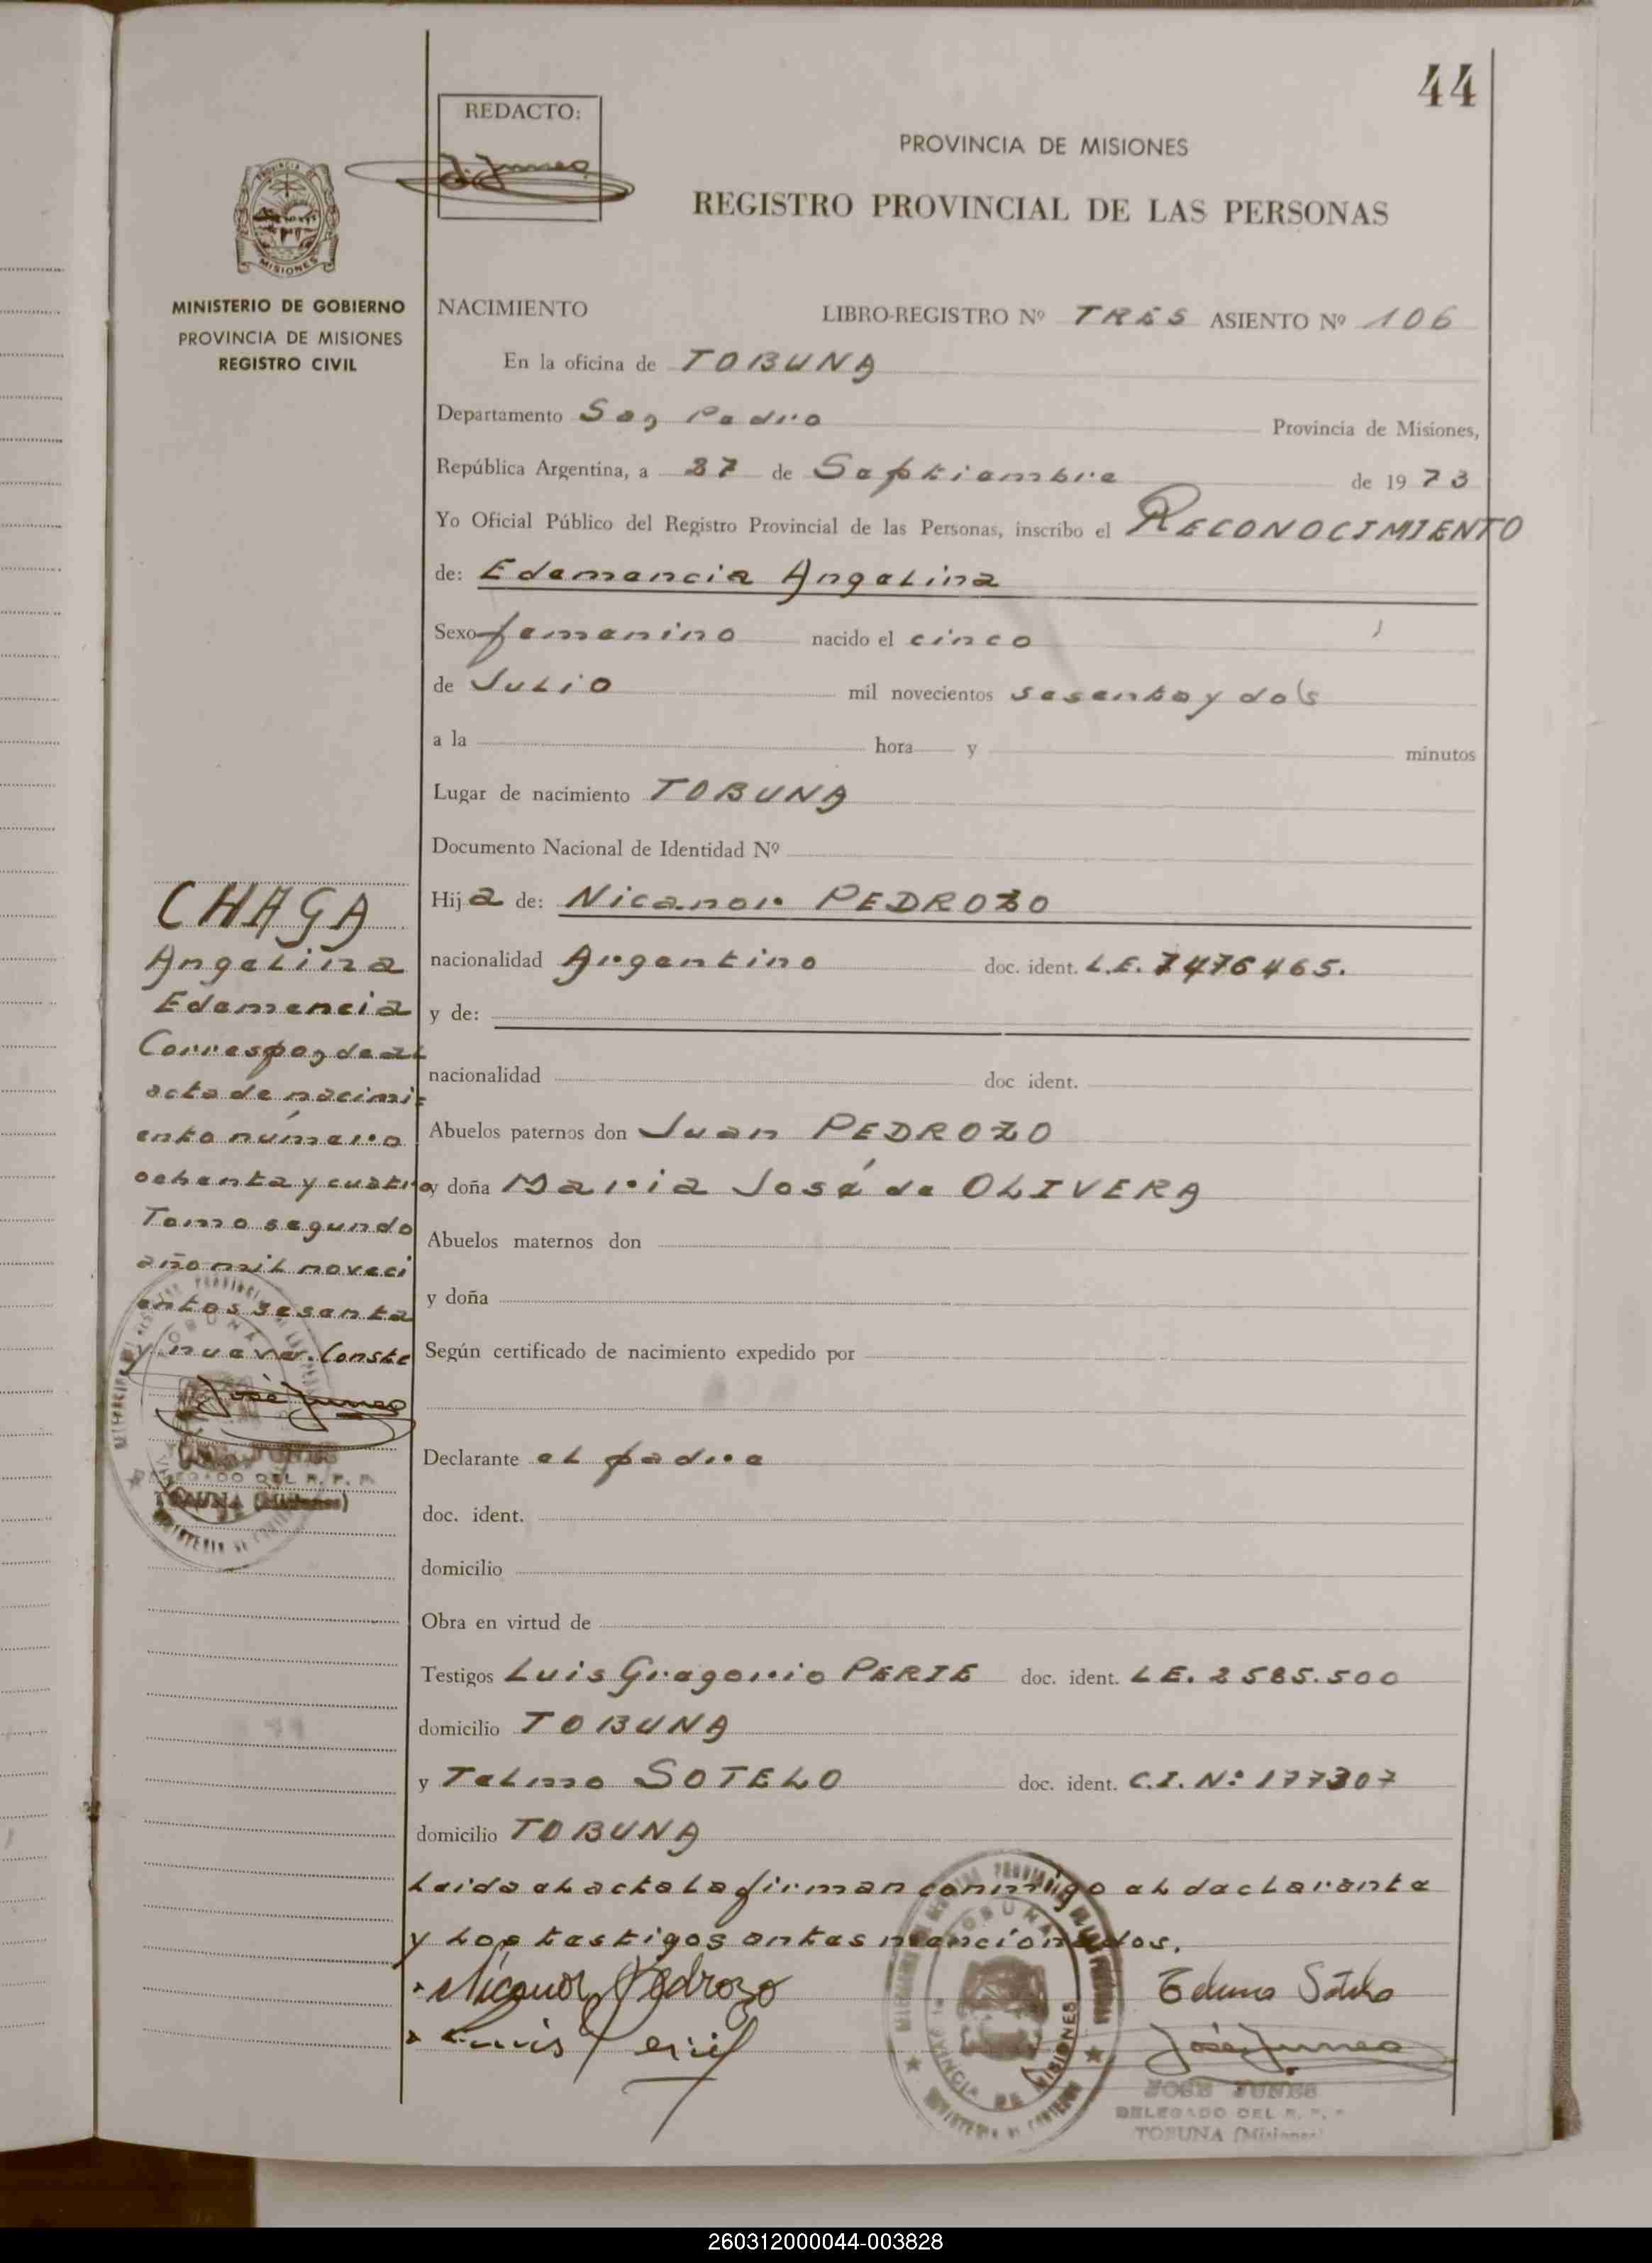 44
REDACTO:
PROVINCIA DE MISIONES
REGISTRO PROVINCIAL DE LAS PERSONAS
MISIONES
MINISTERIO DE GOBIERNO
PROVINCIA DE MISIONES
REGISTRO CIVIL
NACIMIENTO LIBRO-REGISTRO Nº TRES ASIENTO Nº 106
En la oficina de TOBUNA
Departamento San Pedro Provincia de Misiones,
República Argentina, a 27 de Septiembre de 1973
Yo Oficial Público del Registro Provincial de las Personas, inscribo el RECONOCIMIENTO
de: Edemencia Angelina
Sexo femenino nacido el cinco
de Julio mil novecientos sesenta y dos
a la hora y minutos
Lugar de nacimiento TOBUNA
Documento Nacional de Identidad Nº
Hija de: Nicanor PEDROZO
nacionalidad Argentino doc. ident. L.E. 7476465.
y de:
nacionalidad doc ident.
Abuelos paternos don Juan PEDROZO
y doña Maria José de OLIVERA
Abuelos maternos don
y doña
Según certificado de nacimiento expedido por
Declarante el padre
doc. ident.
domicilio
Obra en virtud de
Testigos Luis Gregorio PERIE doc. ident. L.E. 2585.500
domicilio TOBUNA
y Telmo SOTELO doc. ident. C.I. Nº 177307
domicilio TOBUNA
Leida el acta la firman conmigo el declarante
y los testigos antes mencionados.
Nicanor Pedrozo
Telmo Sotelo
Luis Perié
José Junes
JOSE JUNES
DELEGADO DEL R. P. P.
TOBUNA (Misiones)
CHAGA
Angelina
Edemencia
Corresponde al
acta de nacimi-
ento número
ochenta y cuatro
Tomo segundo
año mil noveci
entos sesenta
y nueve. Conste
José Junes
DELEGADO DEL R. P. P.
TOBUNA (Misiones)
260312000044-003828